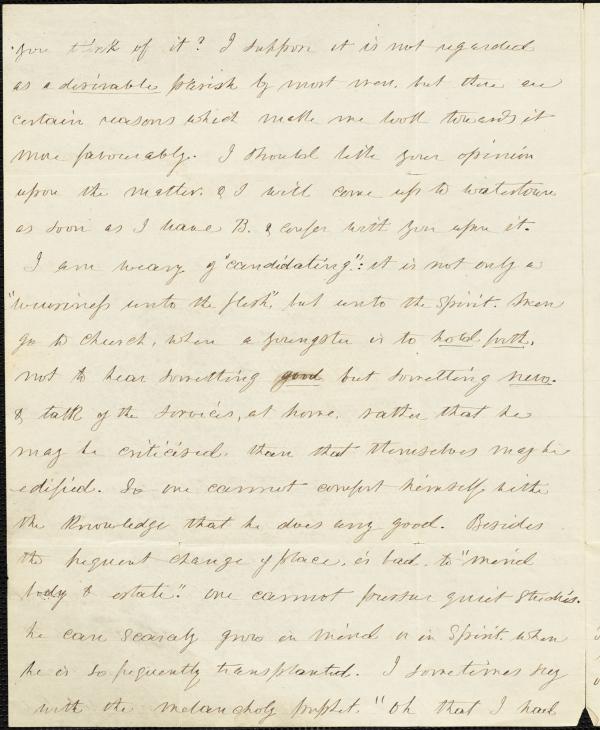 you think of it? I suppose it is not regarded
as a desirable parish by most men. but there are
certain reasons which make me look towards it
more favourably. I should like your opinion
upon the matter. & I will come up to Watertown
as soon as I leave B. & confer with you upon it.
I am weary of "candidating": it is not only a
"weariness unto the flesh", but unto the Spirit. Men
go to church, when a youngster is to hold forth,
not to hear something good but something new.
& talk of the services, at home, rather that he
may be criticised. than that themselves may be
edified. So one cannot comfort himself with
the knowledge that he does any good. Besides
the frequent change of place, is bad, to "mind
body & estate." one cannot pursue quiet studies.
he can scarcely grow in mind or in Spirit. when
he is so frequently transplanted. I sometimes say
with the melancholy prophet. "Oh that I had